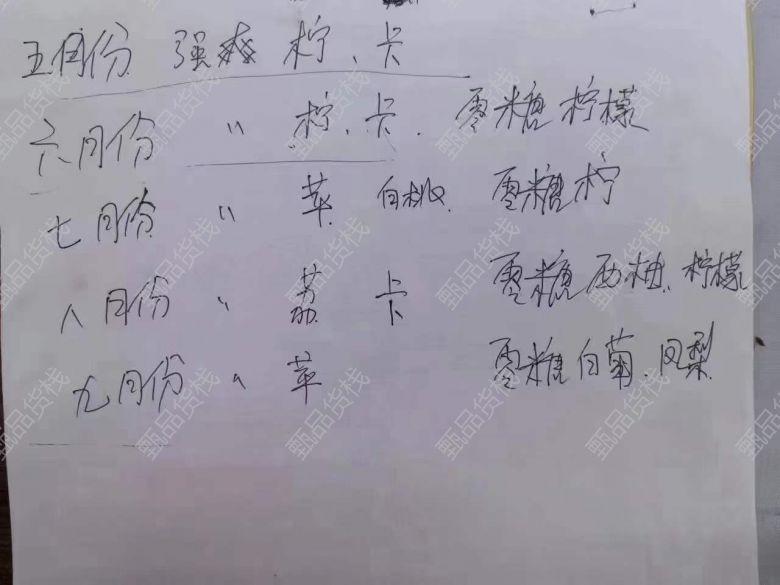 五月份 强爽 柠、卡
六月份 〃 柠、卡. 零糖柠檬
七月份 〃 苹 白桃. 零糖柠
八月份 〃 荔 卡 零糖西柚. 柠檬
九月份 〃 苹 零糖白葡.凤梨
甄品货栈